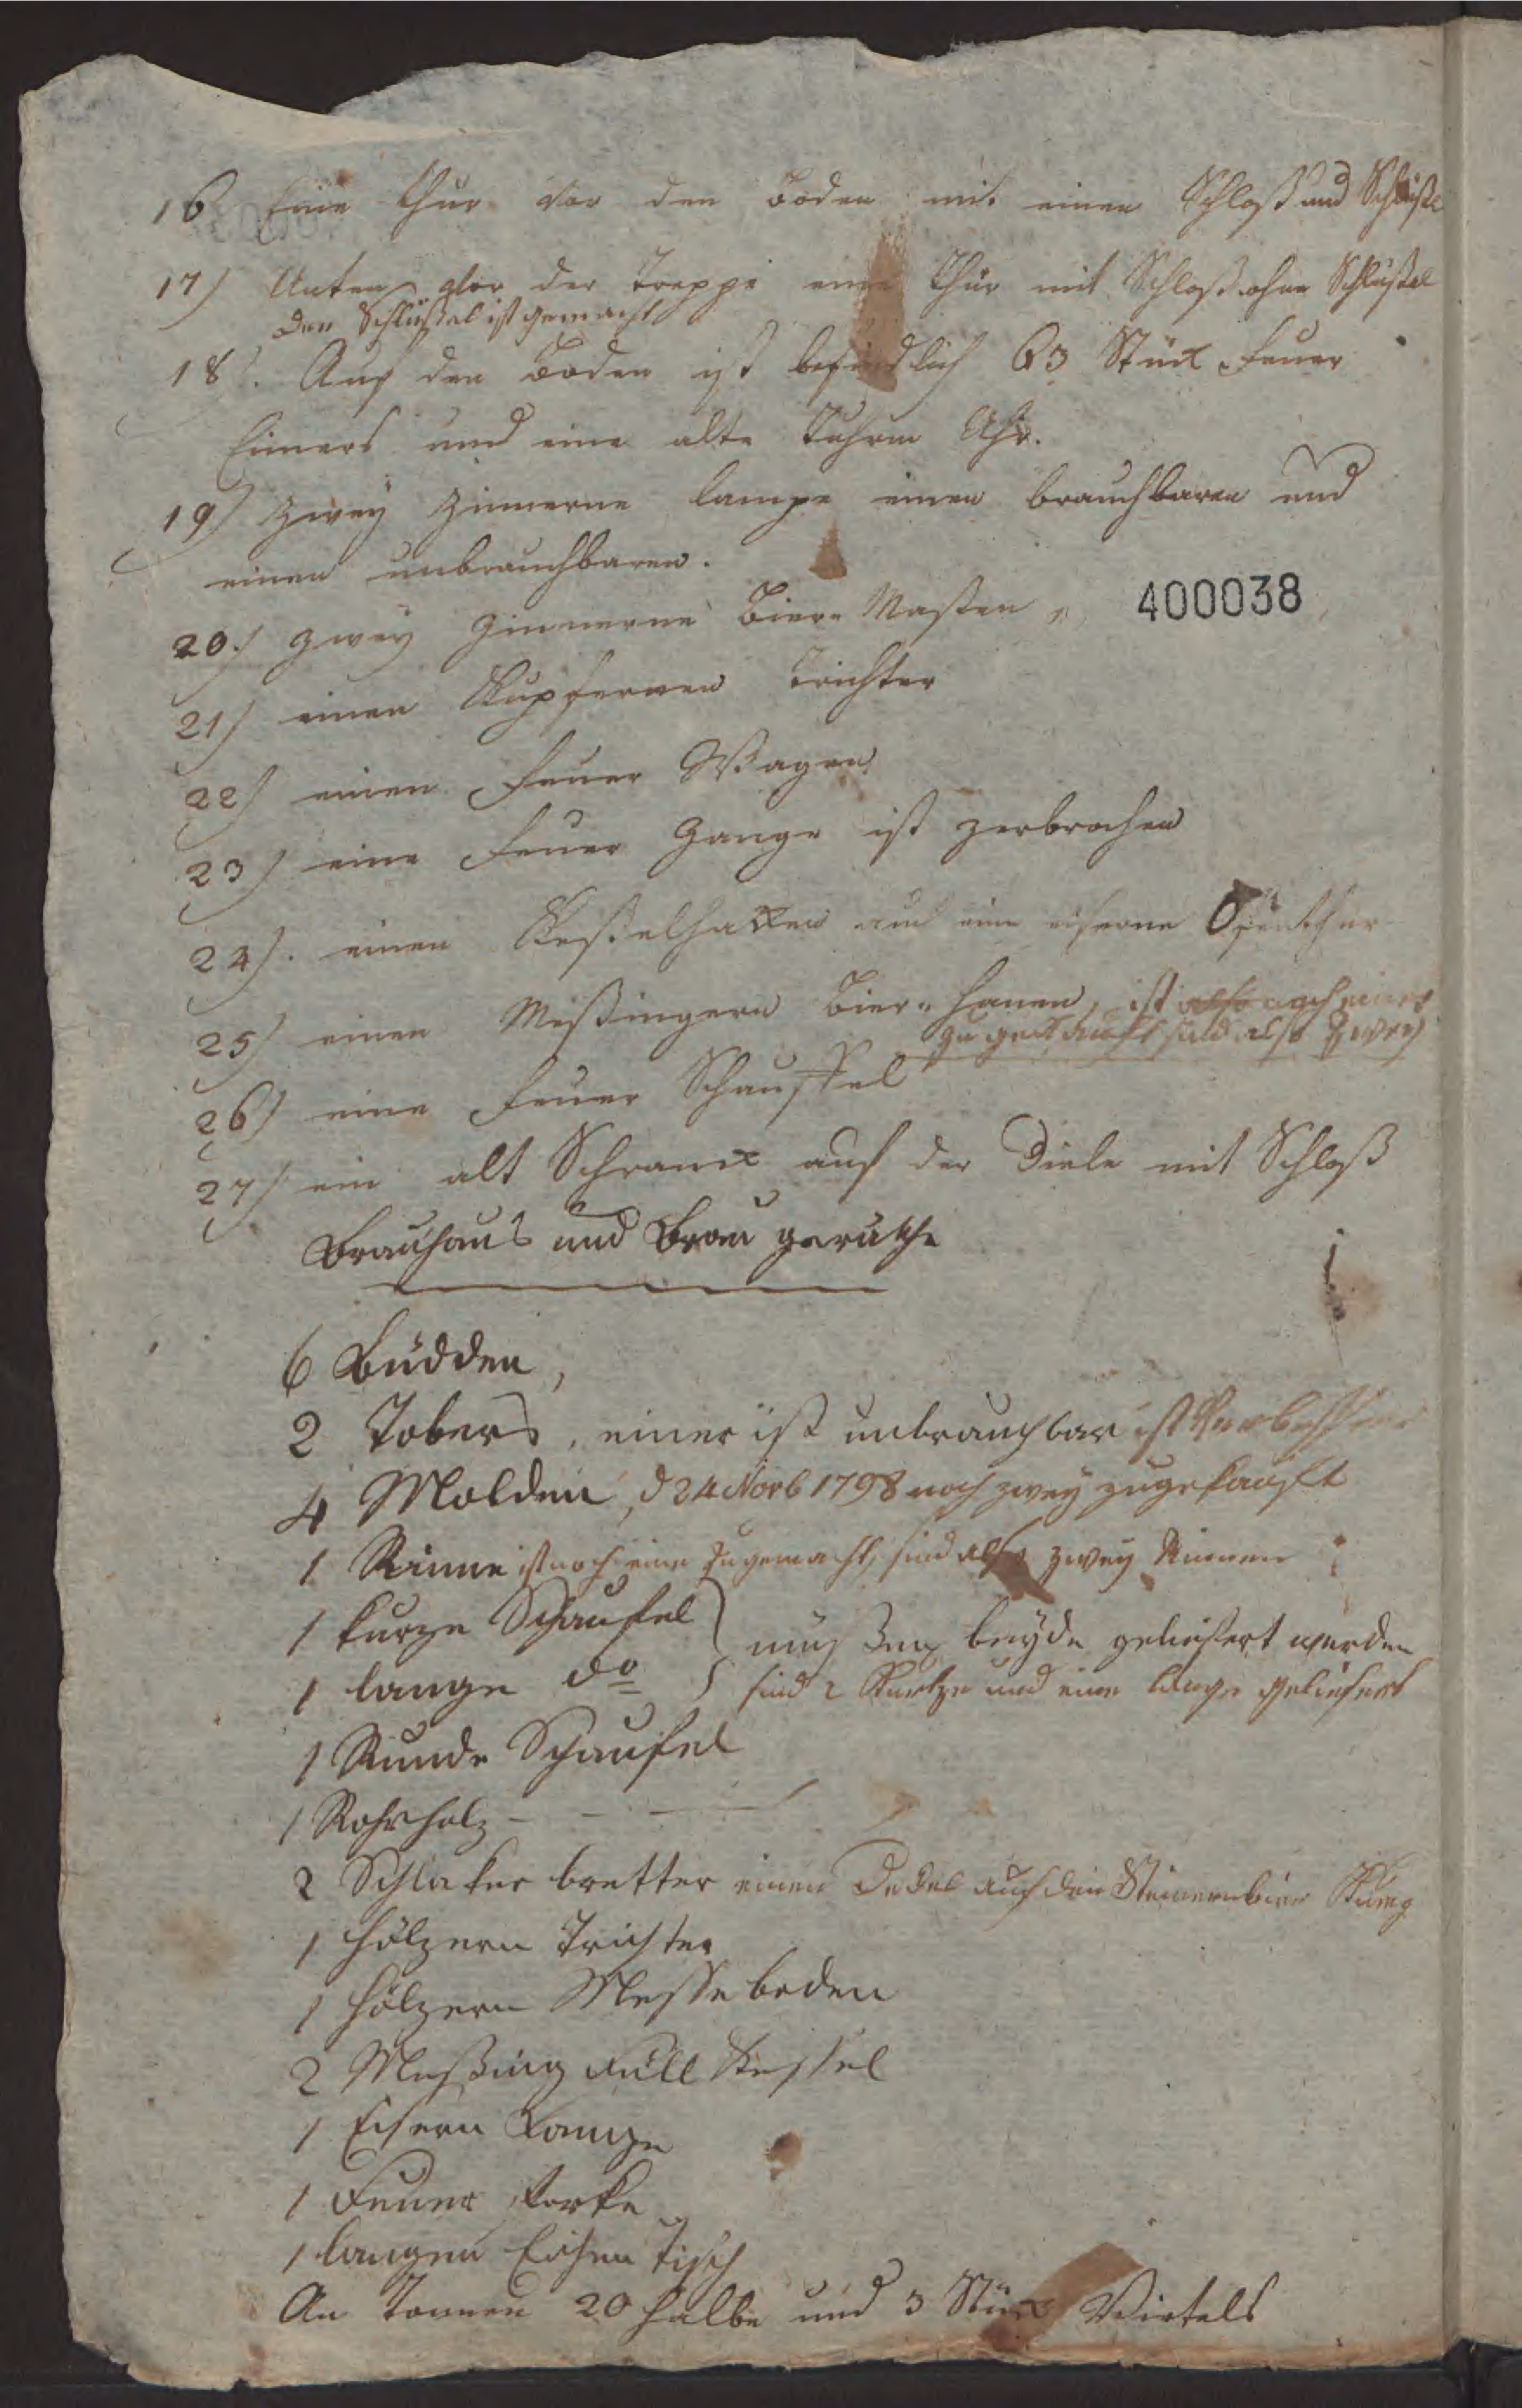 16 Eine thur vor den Boden mit einen Schloß und Schlüßel
17) Unten vor der Treppe eine Thür mit Schloß ohne Schlüßel
den Schlüßel ist gemacht
18). Auf den Boden ist befindlich 63 Stück Feuer
Eimers und eine alte Tuhrm Uhr.
19) Zwey Zinnerne lampe einen brauchbaren und
einen unbrauchbaren.
20.) Zwey Zinnerne Bier-Maßen
400038
21) einen Kupfernen Trichter
22) einen Feuer Wagen
23) eine Feuer Zange ist zerbrochen
24). einen Keßelhacken und eine eiserne Ofenthur
25) einen Meßingern Bier-Hanen, ist also noch einer
zu gekauft sind also Zwey
26) eine Feuer Schauffel
27) ein alt Schranck auf der Diele mit Schloß
Brauhaus und Brau geräthe
6 Büdden,
2 Tobers, einer ist unbrauchbar ist Verbessert
4 Molden, d 24 Novb 1798 noch zwey zugekauft
1 Rinne ist noch eine zugemacht, sind also zwey Rinnen
1 kurze Schaufel
müßen beyde geliefert werden
1 lange do
sind 2 Kurtze und eine lange geliefert
1 Runde Schaufel
1 Rohrholz
2 bretter einen Deckel auf den Steinern
1 hölzern Trichter
1 hölzern
2 Meßing Füll Kessel
1 Eisern Lampe
1 Feuer Forke
1 langen Eichen Tisch
An Tonnen 20 halbe und 3 Stück Viertels